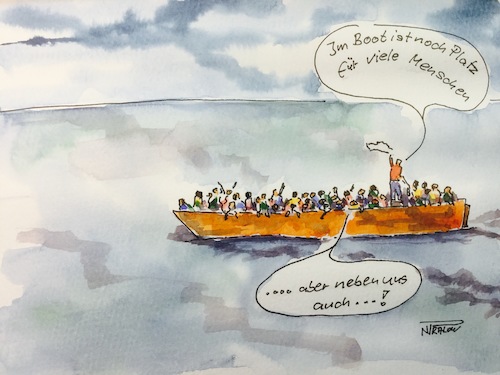 Im Boot ist noch Platz
für viele Menschen
.... aber neben uns
auch...!